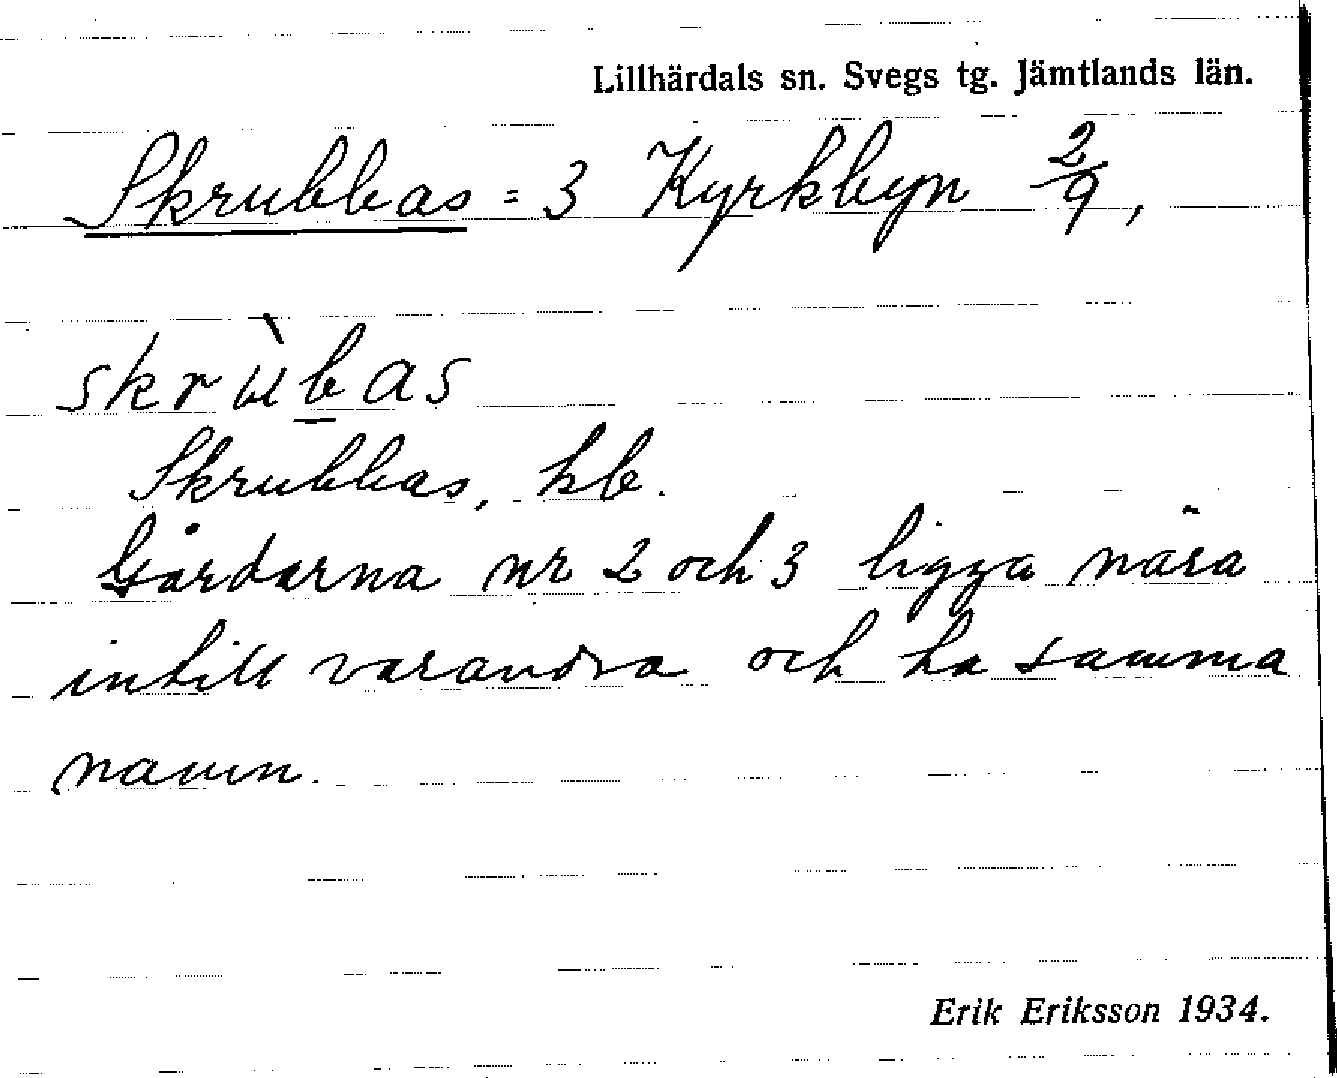 Lillhärdals sn. Svegs tg. Jämtlands län.
Skrubbas = 3 Kyrkbyn 2/9,
skrùb̲as
Skrubbas, kb.
Gårdarna nr 2 och 3 ligga nära
intill varandra och ha samma
namn.
Erik Eriksson 1934.